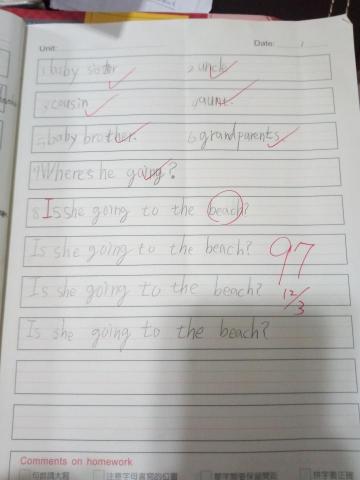 Unit: Date: /
1. baby sister 2. uncle
3. cousin 4. aunt.
5. baby brother. 6. grandparents
7. Where's he going?
8. Is she going to the beach?
Is she going to the beach?
97
Is she going to the beach?
12/3
Is she going to the beach?
Comments on homework
句首請大寫 注意字母書寫的位置 單字間要保留間距 拼字書正確